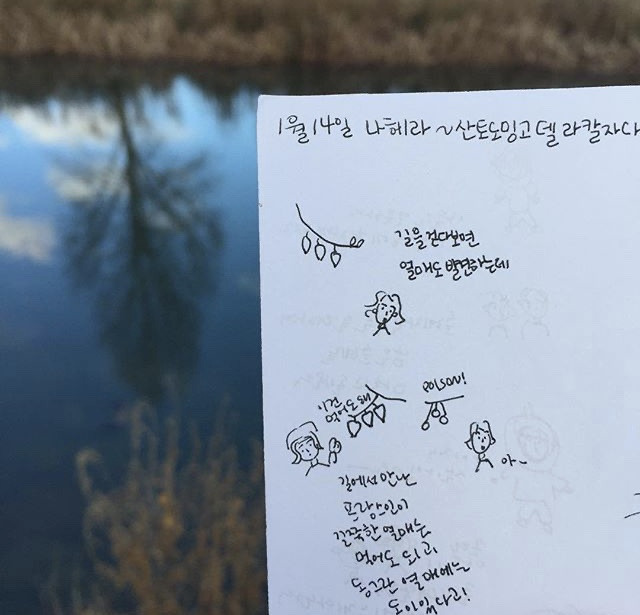 1월 14일 나헤라 ~ 산토도밍고 델 라 칼자다
길을 걷다보면
열매도 발견하는데
이건
먹어도 돼
POISON!
아~
길에서 만난
프랑스인이
길쭉한 열매는
먹어도 되고
동그란 열매에는
독이 있다고!